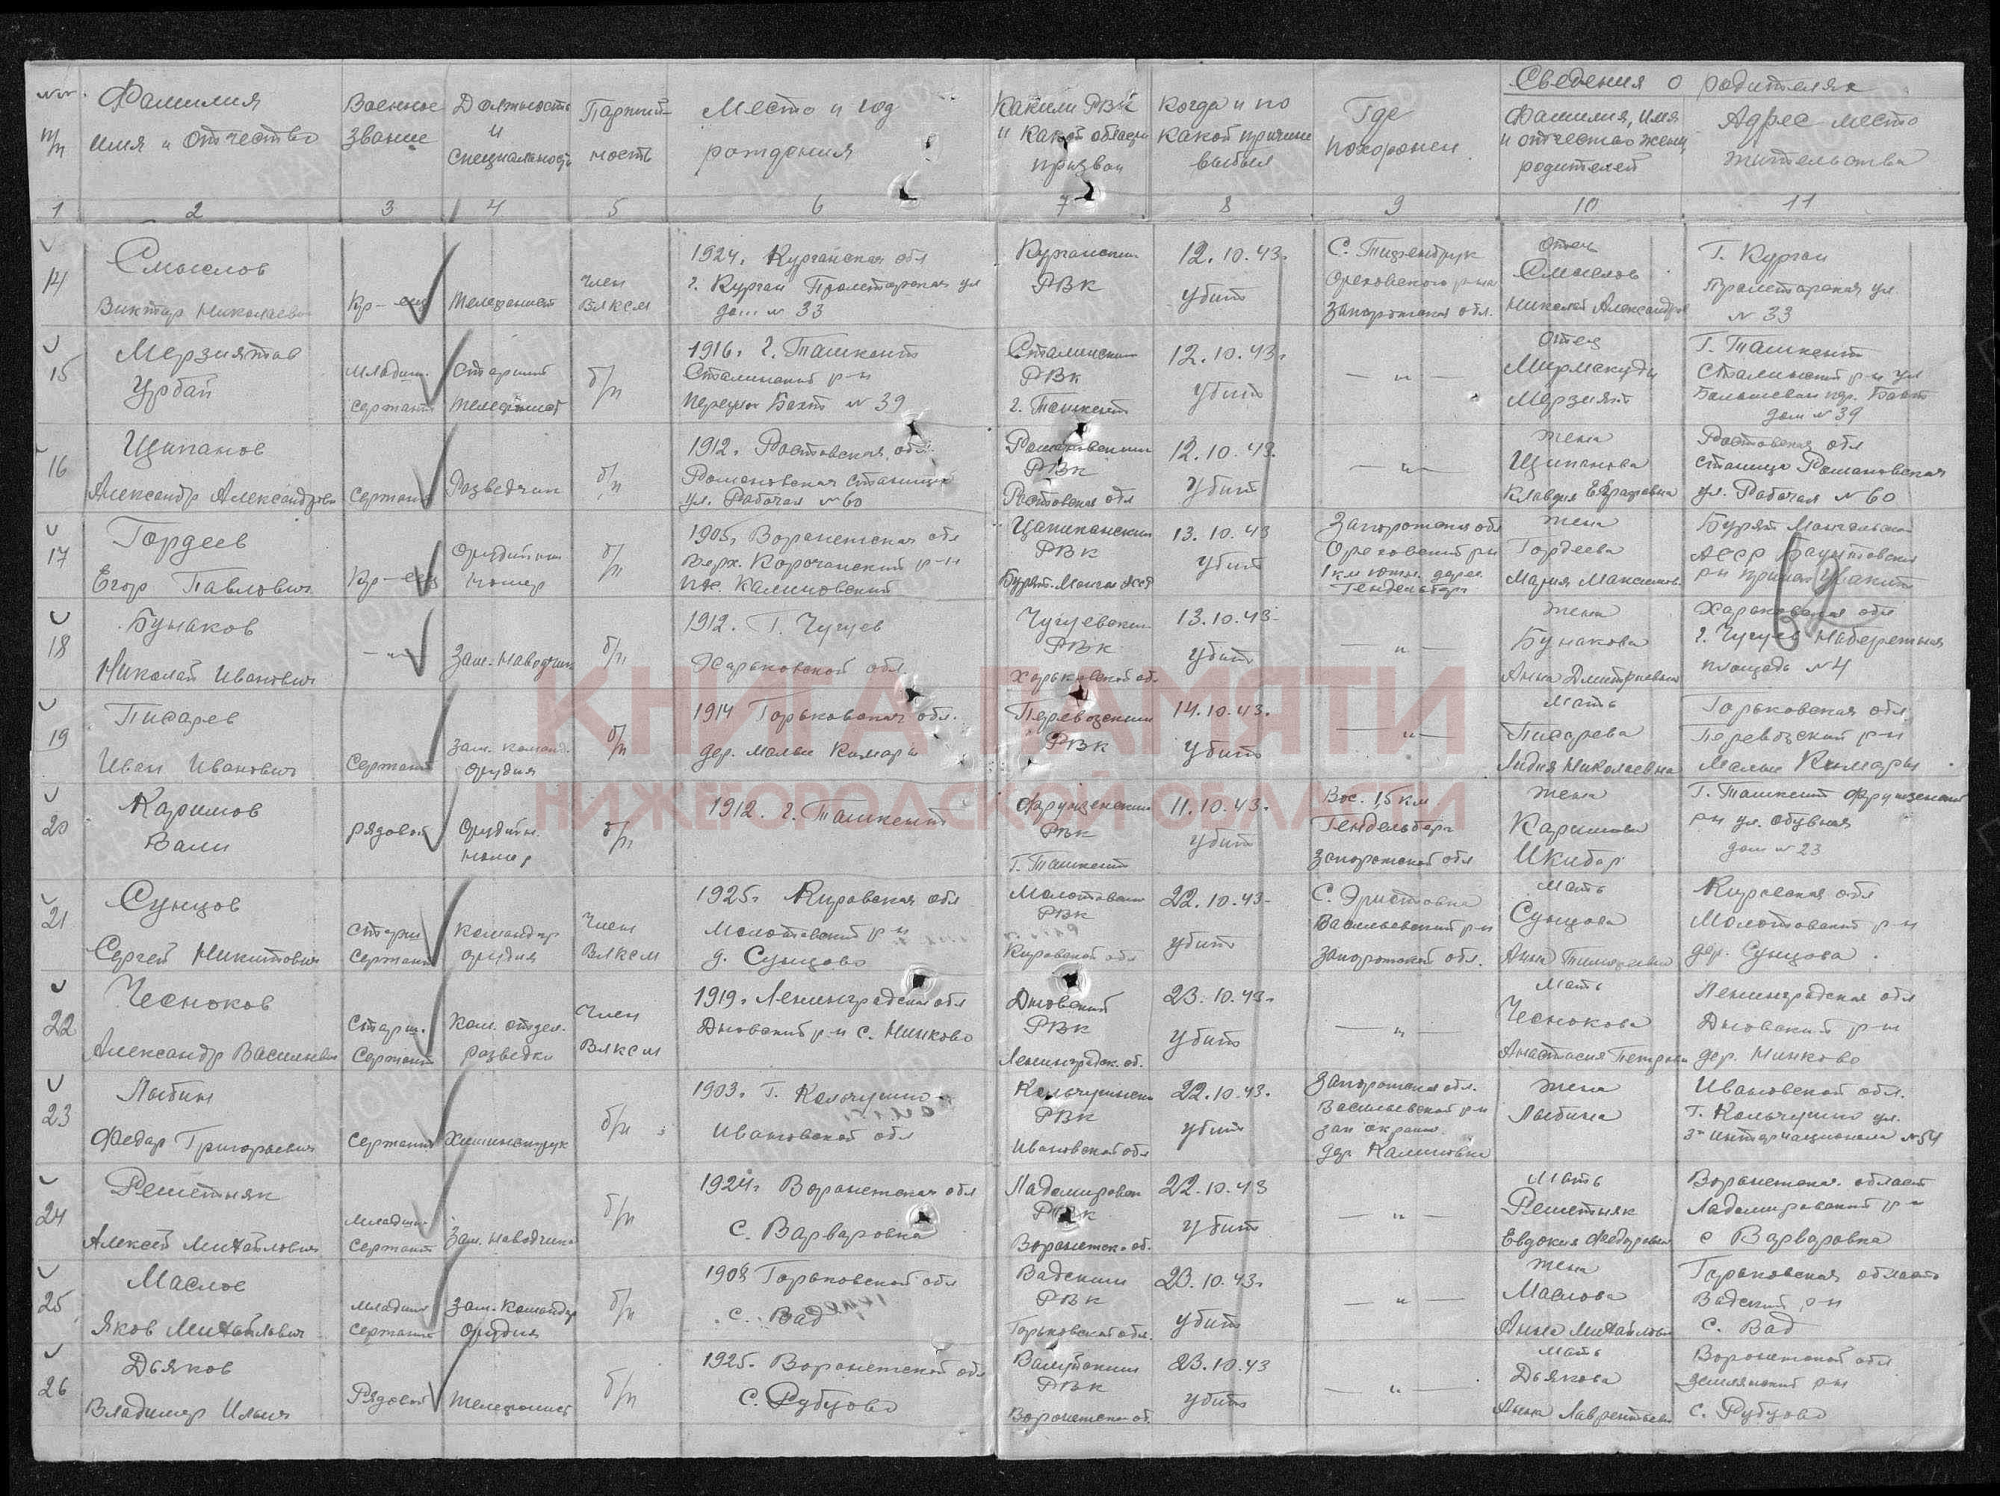 №№ п/п
Фамилия имя и отчество
Военное звание
Должность и специальность
Партийность
Место и год рождения
Каким РВК и какой области призван
Когда и по какой причине выбыл
Где похоронен
Сведения о родителях
Фамилия, имя и отчество жены, родителей
Адрес место жительства
1 2 3 4 5 6 7 8 9 10 11
14
Смыслов
Виктор Николаевич
Кр-ец
Телефонист
член ВЛКСМ
1924г. Курганская обл
г. Курган Пролетарская ул
дом № 33
Курганским РВК
12.10.43г. убит
Ореховского р-на
Запорожская обл.
Отец
Смыслов
Николай Александров
г. Курган
Пролетарская ул.
№ 33
15
Мерзиятов
Урбай
Младш. сержант
Старший телефонист
б/п
1916г. г. Ташкент
Сталинский р-н
№ 39
Сталинским РВК
г. Ташкент
12.10.43г. убит
— „ —
Отец
Г. Ташкент
Сталинский р-н ул
дом № 39
16
Щипанов
Александр Александрович
Сержант
Разведчик
б/п
1912г. Ростовская обл.
Романовская станица
ул. Рабочая № 60
Романовским РВК
Ростовская обл
12.10.43г. убит
— „ —
жена
Щипанова
Клавдия Ефратовна
Ростовская обл
станица Романовская
ул. Рабочая № 60
17
Гордеев
Егор Павлович
Кр-ец
Орудийный номер
б/п
1905г Воронежская обл
Верх. Карачанский р-н
пос. Калиновский
РВК
Бурят. Монгол АССР
13.10.43 убит
Запорожская обл
Ореховский р-н
1 км южн. дерев.
Гендельберг
жена
Гордеева
Мария Максимов.
Бурят Монгольская
АССР Баунтовский
р-н
18
Бунаков
Николай Иванович
— „ —
Зам. наводчик
б/п
1912г. Г. Чугуев
Харьковской обл.
Чугуевским РВК
Харьковской обл
13.10.43г. убит
— „ —
жена
Бунакова
Анна Дмитриевна
Харьковская обл
г. Чугуев Набережная
площадь № 4
19
Писарев
Иван Иванович
Сержант
Зам. команд. орудия
б/п
1914 Горьковская обл.
дер. Малые Кемары
Перевозским РВК
14.10.43г. убит
— „ —
Мать
Писарева
Лидия Николаевна
Горьковская обл.
Перевозский р-н
Малые Кемары
20
Каримов
Вали
рядовой
Орудийн. номер
б/п
1912г. г. Ташкент
Фрунзенским РВК
Г. Ташкент
11.10.43г. убит
Вос. 1,5 км
Гендельберг
Запорожской обл
жена
Каримова
Г. Ташкент Фрунзенский
р-н ул. Обувная
дом № 23
21
Сунцов
Сергей Никитович
Старш Сержант
Командир орудия
Член ВЛКСМ
1925г Кировская обл
Молотовский р-н
д. Сунцово
Молотовским РВК
Кировской обл
22.10.43г убит
С. Эристовка
Васильевский р-н
Запорожской обл.
Мать
Сунцова
Анна Тимофеевна
Кировская обл
Молотовский р-н
дер. Сунцова
22
Чесноков
Александр Васильевич
Старш. Сержант
Ком. отдел. разведки
Член ВЛКСМ
1919г. Ленинградская обл
Дновский р-н с. Нинково
Дновский РВК
Ленинградск. об.
23.10.43г. убит
— „ —
Мать
Чеснокова
Анастасия Петровна
Ленинградская обл
Дновский р-н
дер. Нинково
23
Лыбин
Федор Григорьевич
Сержант
Химинструк
б/п
1903г. Г. Кольчугино
Ивановской обл
Кольчугински РВК
Ивановской обл
22.10.43г. убит
Запорожская обл.
Васильевский р-н
зап окраин.
дер. Калиновка
жена
Лыбина
Ивановской обл.
Г. Кольчугино ул.
3й интернационала № 54
24
Решетняк
Алексей Михайлович
Младш. Сержант
Зам. наводчика
б/п
1924г Воронежская обл
С. Варваровка
Ладомировск РВК
Воронежской об.
22.10.43 убит
— „ —
Мать
Решетняк
Евдокия Федоровна
Воронежская област
Ладомировский р-н
с Варваровка
25
Маслов
Яков Михайлович
младший Сержант
Зам. командир орудия
б/п
1908 Горьковской обл
с. Вад
Вадским РВК
Горьковской обл.
23.10.43г убит
— „ —
жена
Маслова
Анна Михайловн
Горьковская область
Вадский р-н
с. Вад
26
Дьяков
Владимир Ильич
Рядовой
Телефонист
б/п
1925г. Воронежской обл
с. Рубцово
РВК
Воронежской об.
23.10.43 убит
— „ —
Мать
Дьякова
Анна Лаврентьевн
Воронежской обл
Землянский р-н
с. Рубцово
КНИГА ПАМЯТИ
НИЖЕГОРОДСКОЙ ОБЛАСТИ